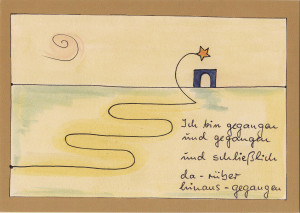 Ich bin gegangen
und gegangen
und schließlich
da-rüber
hinaus-gegangen